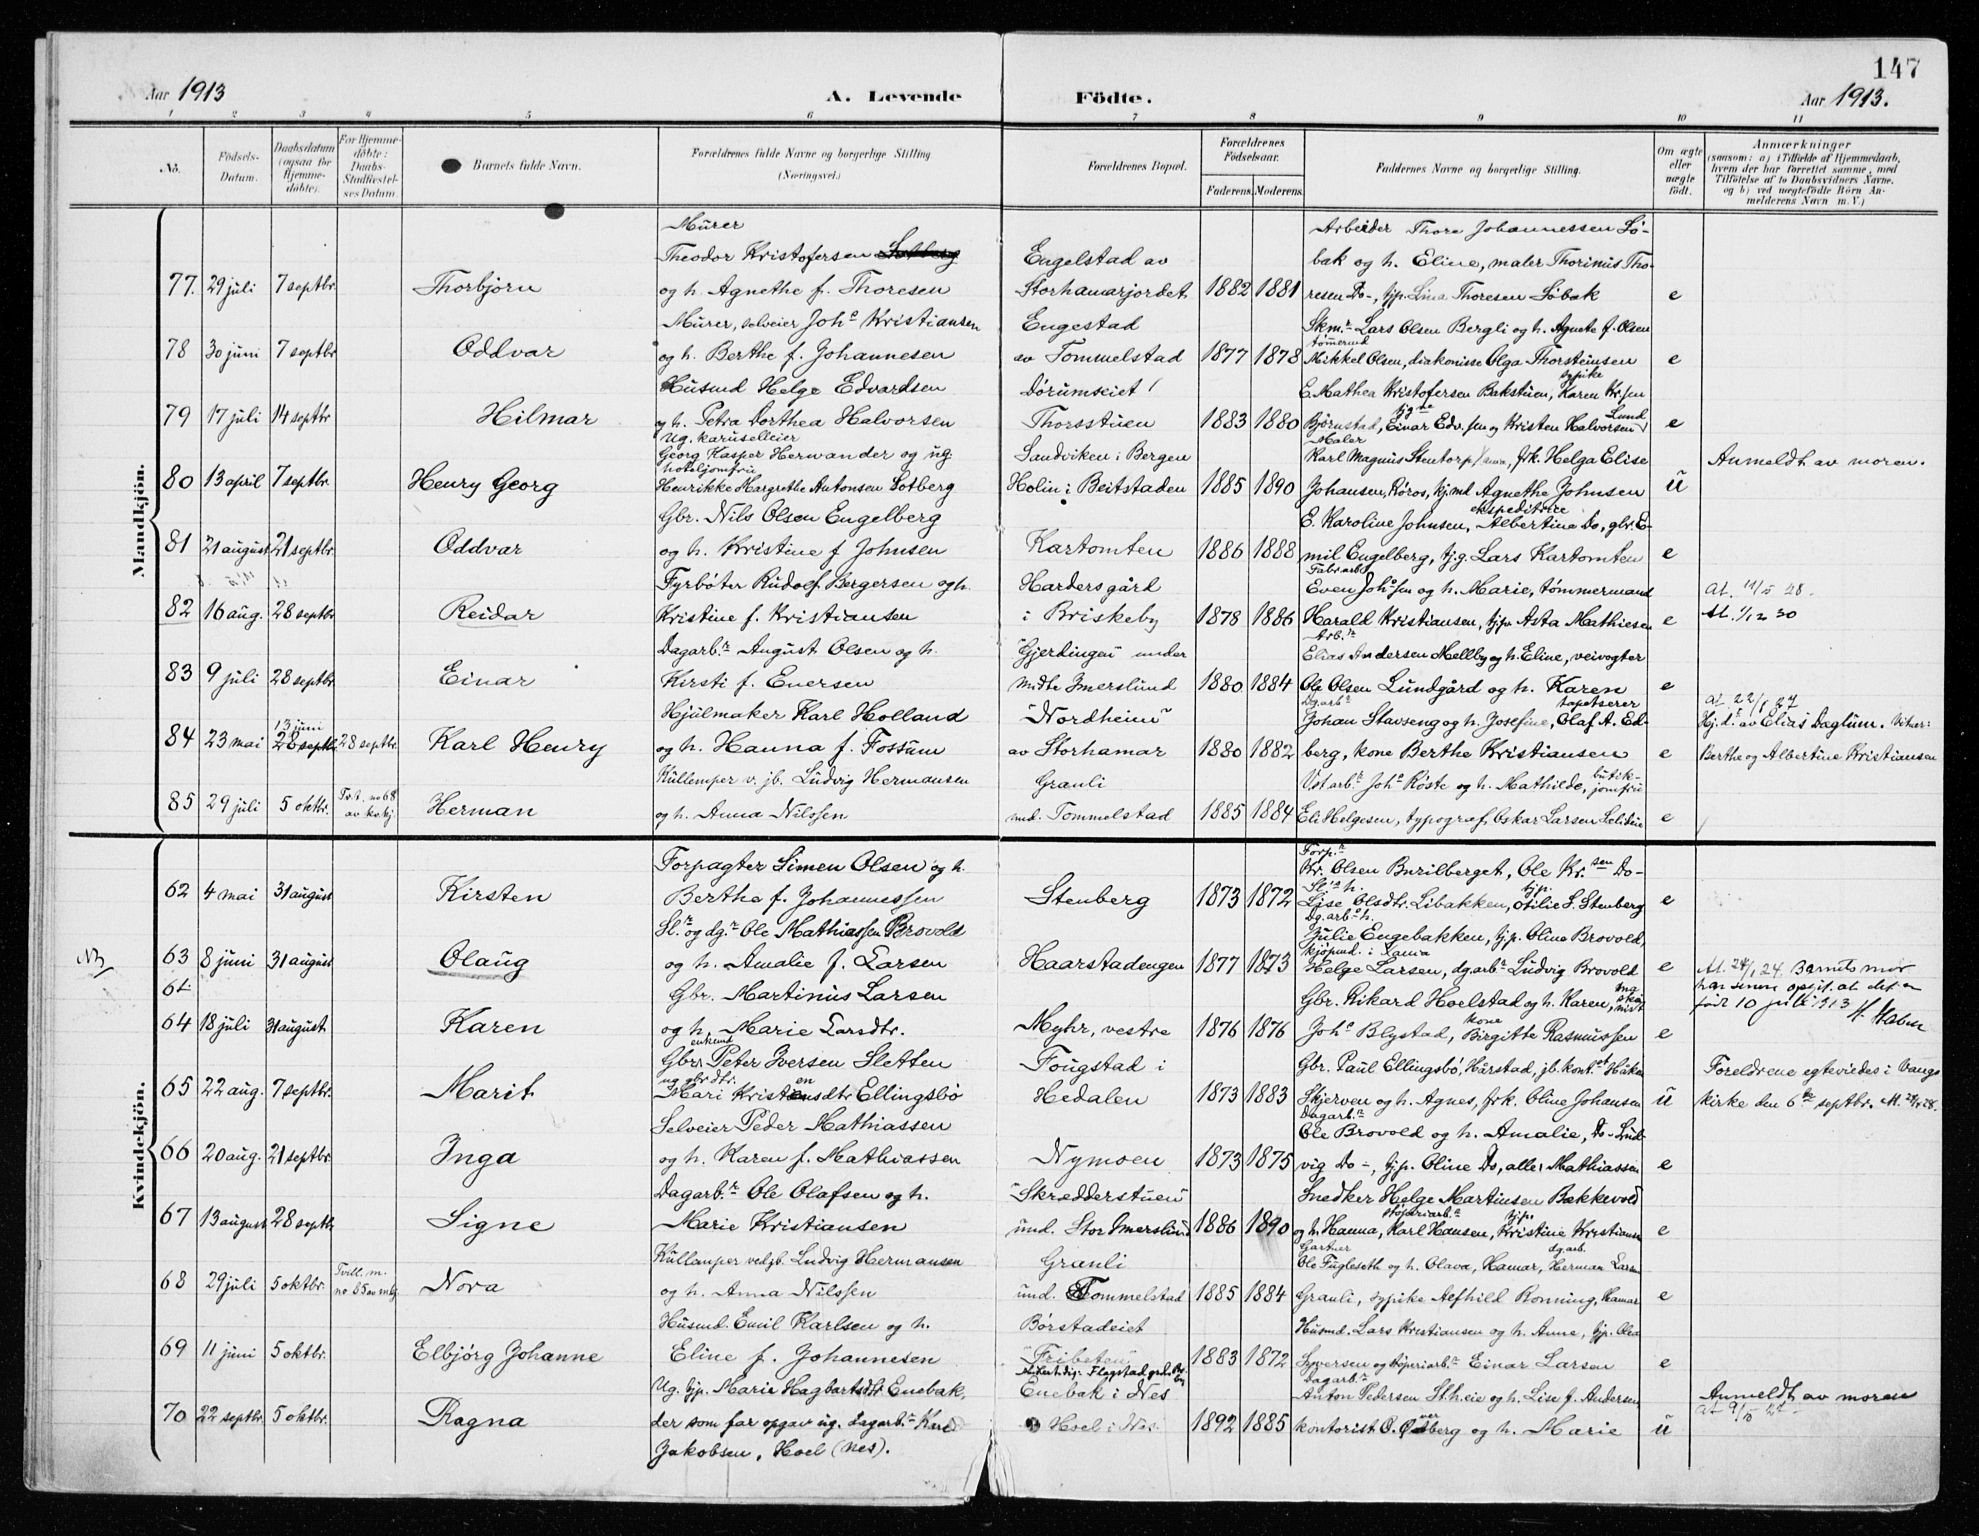 147
Aar 1913
A. Levende
Födte.
Aar 1913.
1 2 3 4 5 6 7 8 9 10 11
No.
Födsels-Datum.
Daabsdatum (ogsaa for Hjemme-döbte).
For Hjemme-döbte: Daabs-Stadfæstel-ses Datum.
Barnets fulde Navn.
Forældrenes fulde Navne og borgerlige Stilling (Næringsvei.)
Forældrenes Bopæl.
Forældrenes Födselsaar.
Faderens. Moderens.
Faddernes Navne og borgerlige Stilling.
Om ægte eller uægte födt.
Anmærkninger
(saasom: a) i Tilfælde af Hjemmedaab, hvem der har forrettet samme, med Tilföielse af to Daabsvidners Navne, og b) ved uægtefödte Börn An-melderens Navn m. V.)
Mandkjön.
Murer
Theodor Kristofersen Solberg
Engelstad av
Arbeider Thore Johannessen Sö-
bak og h. Eline, maler Thorinus Tho-
77. 29 juli 7 septbr. Thorbjörn og h. Agnethe f. Thoresen Storhamarjordet 1882 1881 resen Do-, tjp. Lina Thoresen Söbak e
Murer, selveier Joh⁠s Kristiansen Engestad Skm.r Lars Olsen Bergli og h. Agnete f. Olsen
tömermd
78 30 juni 7 septbr. Oddvar og h. Berthe f. Johannesen av Tommelstad 1877 1878 Mikkel Olsen, diakonisse Olga Thorsteinsen e
Husmd Helge Edvardsen Dörumseiet E. Mathea Kristofersen Bakstuen, sypike Karen Kr.sen
79 17 juli 14 septbr Hilmar og h. Petra Dorthea Halvorsen Thorsstuen 1883 1880 Björnstad, Einar Edv.sen og Kristen Halvorsen Lund e
Ug. karuselleier
Georg Kasper Herwander og ug. Sandviken i Bergen
Maler
Karl Magnus Stentorp, frk. Helga Elise Anmeldt av moren.
hoteljomfru
80 13 april 7 septbr. Henry Georg Henrikke Margrethe Antonsen Sotberg Holin i Beitstaden 1885 1890 Johansen, Röros, kj.md Agnethe Johnsen ü
Gbr. Nils Olsen Engelberg E. Karoline Johnsen, ekspeditrice Albertina Do, gbr. E-
81 21 august 21 septbr. Oddvar og h. Kristine f Johnsen Kartomten 1886 1888 mil Engelberg, tj.g. Lars Kartomten e
Fyrböter Rudolf Bergersen og h. Hardersgård
Fabr.arb.
Even Joh.sen og h. Marie, tömmermand At. 11/5 28.
82 16 aug. 28 septbr Reidar Kristine f. Kristiansen i Briskeby 1878 1886 Harald Kristiansen, tjp Asta Mathiesen e At. 1/12 30
Dagarb.r August Olsen og h. "Gjerdingen" under
Arb.r
Elias Andersen Mellby og h. Eline, veivogter
83 9 juli 28 septbr Einar Kirsti f. Enersen Midte Imerslund 1880 1884 Ole Olsen Lundgård og h. Karen e
At 22/1 27
Hjulmaker Karl Holland "Nordheim"
Dg.arb.r
Johan Stavseng og h. Josefine, tapetserer Olaf A. Ed- Hj.d. av Elias Daglum. Vitner:
13 juni
84 23 mai 28 septbr 28 septbr. Karl Henry og h. Hanna f. Fossum av Storhamar 1880 1882 berg, kone Berthe Kristiansen e Berthe og Albertine Kristiansen
Kullemper v. jb. Ludvig Hermansen Granli Vst arb.r Joh.s Röste og h. Mathilde, butik-jomfru
85 29 juli 5 oktbr. Tv.t. no 68 av kv.kj. Herman og h. Anna Nilssen und. Tommelstad 1885 1884 Eli Helgesen, typograf Oskar Larsen e
Kvindekjön.
Forpagter Simen Olsen og h.
Forp.r
Kr. Olsen Burilberget, Ole Kr.sen Do-
62 4 mai 31 august Kirsten Berthe f. Johannessen Stenberg 1873 1872 Lise Olsdtr. Libakken, tjp. Otilie S. Stenberg e
Sl.r og dg.r Ole Mathiassen Brovold
Dg.arb. h.
Julie Engebakken, tjp. Oline Brovold,
NB
63 8 juni 31 august Olaug og h. Amalie f. Larsen Haarstadengen 1877 1873
kjöpmd. i
Helge Larsen, dg.arb.r Ludvig Brovold e At. 24/1 24. Barnets mor
Gbr. Martinus Larsen Gbr. Rikard Hoelstad og h. Karen, har senere opgit at det er
64 18 juli 31 august. Karen og h. Marie Larsdtr. Myhr, vestre 1876 1876 Joh.s Blystad, kone Birgitte Rasmussen e född 10 juli 1913
enkemd
Gbr. Peter Iversen Sletten Fougstad i Gbr. Paul Ellingsbö, Hårstad, jb. kont.st Håkon Foreldrene egteviedes i Vangs
ug gbr dtr.
65 22 aug. 7 septbr. Marit Mari Kristensdtr Ellingsbö Hedalen 1873 1883 Skjerven og h. Agnes, frk. Oline Johansen ü kirke den 6te septbr.
Selveier Peder Mathiassen
Dagarb.r
Ole Brovold og h. Amalie, Do- Lud-
66 20 aug. 21 septbr. Inga og h. Karen f. Mathiassen Nymoen 1873 1875 vig Do-, tjp. Oline Do, aller Mathiassen e
Dagarb.r Ole Olafsen og h. "Skrædderstuen" Snedker Helge Martinsen Bakkevold
67 13 august 28 septb. Signe Marie Kristiansen und. Stor Imerslund 1886 1890 og h. Hanna, stöperiarb.r Karl Hansen, tjp. Kristine Kristiansen e
Kullemper ved jb. Ludvig Hermansen Granli
Gartner
Ole Fugleseth og h. Olava, Hamar, dg.arb. Herman Larsen
68 29 juli 5 oktbr. Tvill. m. no 85 av mkj. Nora og h. Anna Nilssen und. Tommelstad 1885 1884 Granli, sypike Alfhild Ronning, Hamar e
Husmd. Emil Karlsen og h. Börstadeiet Husmd. Lars Kristiansen og h. Anne, tjp. Olea
69 11 juni 5 oktbr. Elbjörg Johanne Eline f. Johannesen "Fribeten" 1883 1872 Syversen og stöperiarb.r Einar Larsen e
Ug. tjp. Marie Hagbartsdtr Enebak, Enebak i Nes
Dagarb.r
Anton Pedersen St.heie og h. Lise f. Andersen Anmeldt av moren
70 22 septbr. 5 oktbr. Ragna der som far opgav ug. dagarb.r Karl Hoel i Nes 1892 1885 kontorist O. Östberg og h. Marie ü
Jakobsen, Hoel (Nes).